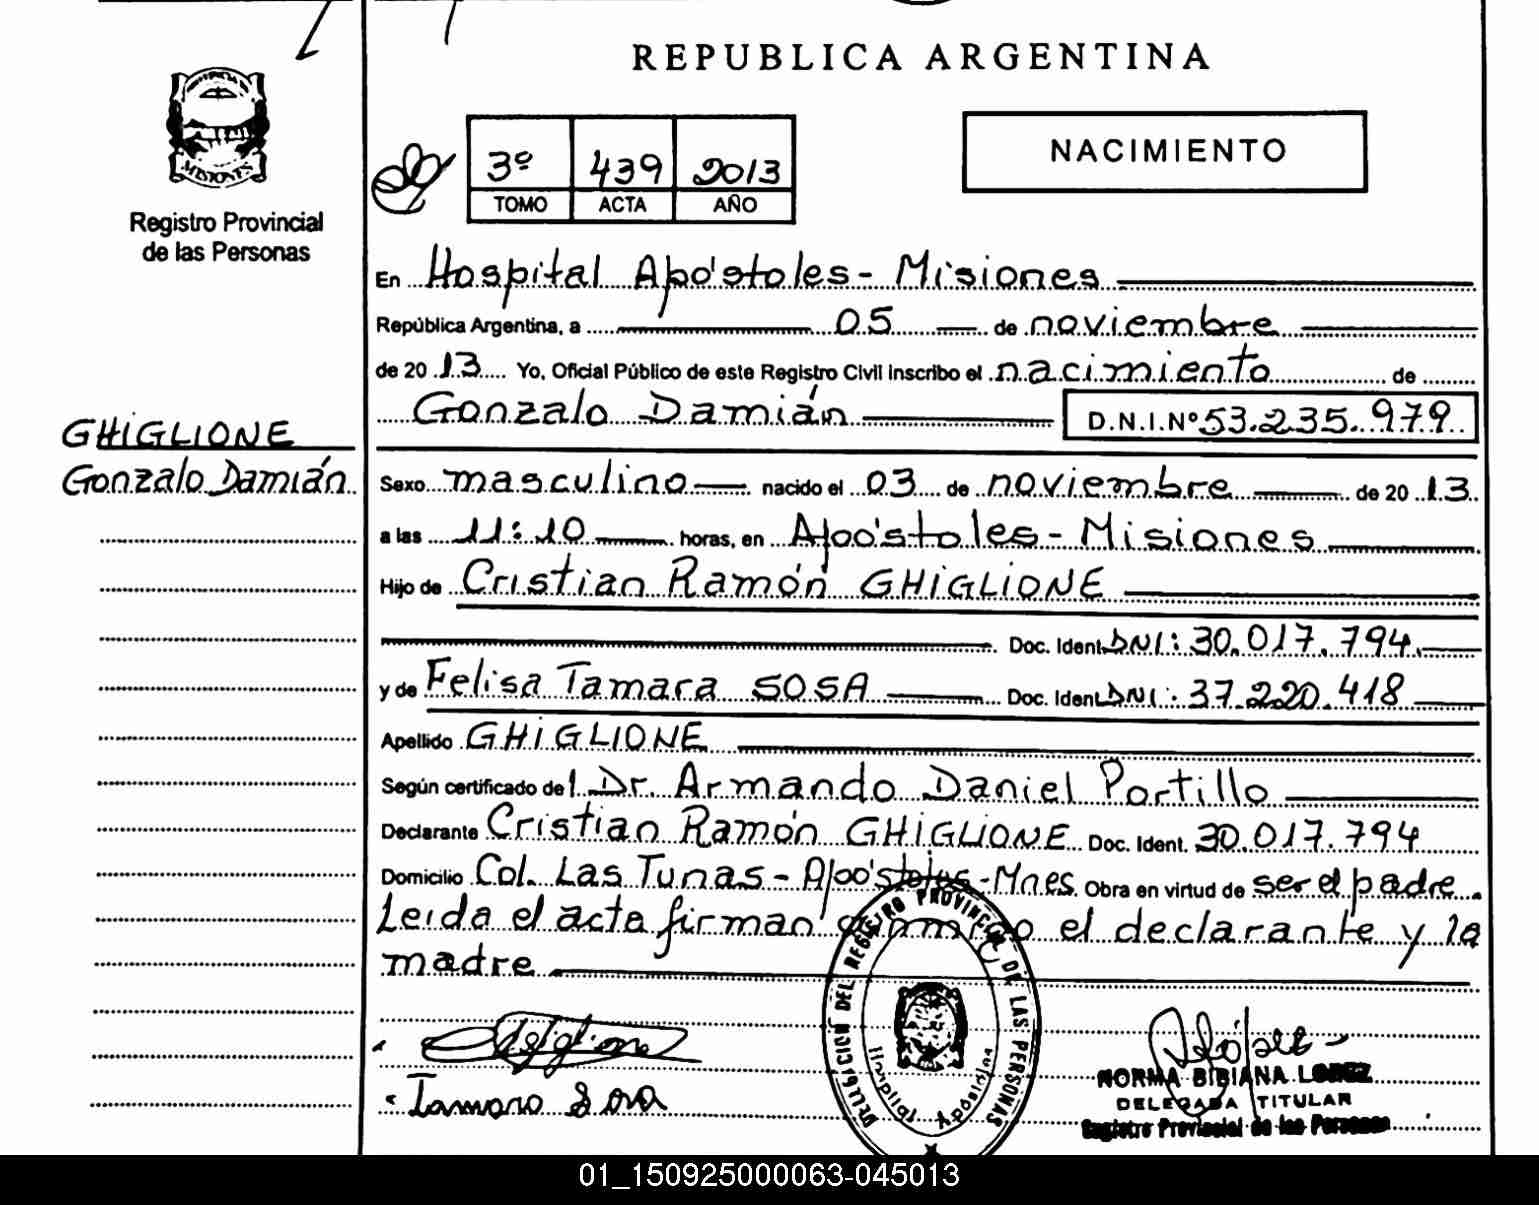 REPUBLICA ARGENTINA
MISIONES
Registro Provincial
de las Personas
3º 439 2013
TOMO ACTA AÑO
NACIMIENTO
En Hospital Apóstoles - Misiones
República Argentina, a 05 de noviembre
de 2013 Yo, Oficial Público de este Registro Civil inscribo el nacimiento de
Gonzalo Damián D.N.I.Nº 53.235.979
GHIGLIONE
Gonzalo Damián
Sexo masculino nacido el 03 de noviembre de 2013
a las 11:10 horas, en Apóstoles - Misiones
Hijo de Cristian Ramón GHIGLIONE
Doc. Ident DNI: 30.017.794
y de Felisa Tamara SOSA Doc. Ident DNI: 37.220.418
Apellido GHIGLIONE
Según certificado del Dr. Armando Daniel Portillo
Declarante Cristian Ramón GHIGLIONE Doc. Ident. 30.017.794
Domicilio Col. Las Tunas - Apóstoles - Mnes. Obra en virtud de ser el padre.
Leida el acta firman conmigo el declarante y la
madre
Ghiglione
Tamara Sosa
DELEGACION DEL REGISTRO PROVINCIAL DE LAS PERSONAS
Hospital Apóstoles
NORMA BIBIANA LOPEZ
DELEGADA TITULAR
Registro Provincial de las Personas
01_150925000063-045013